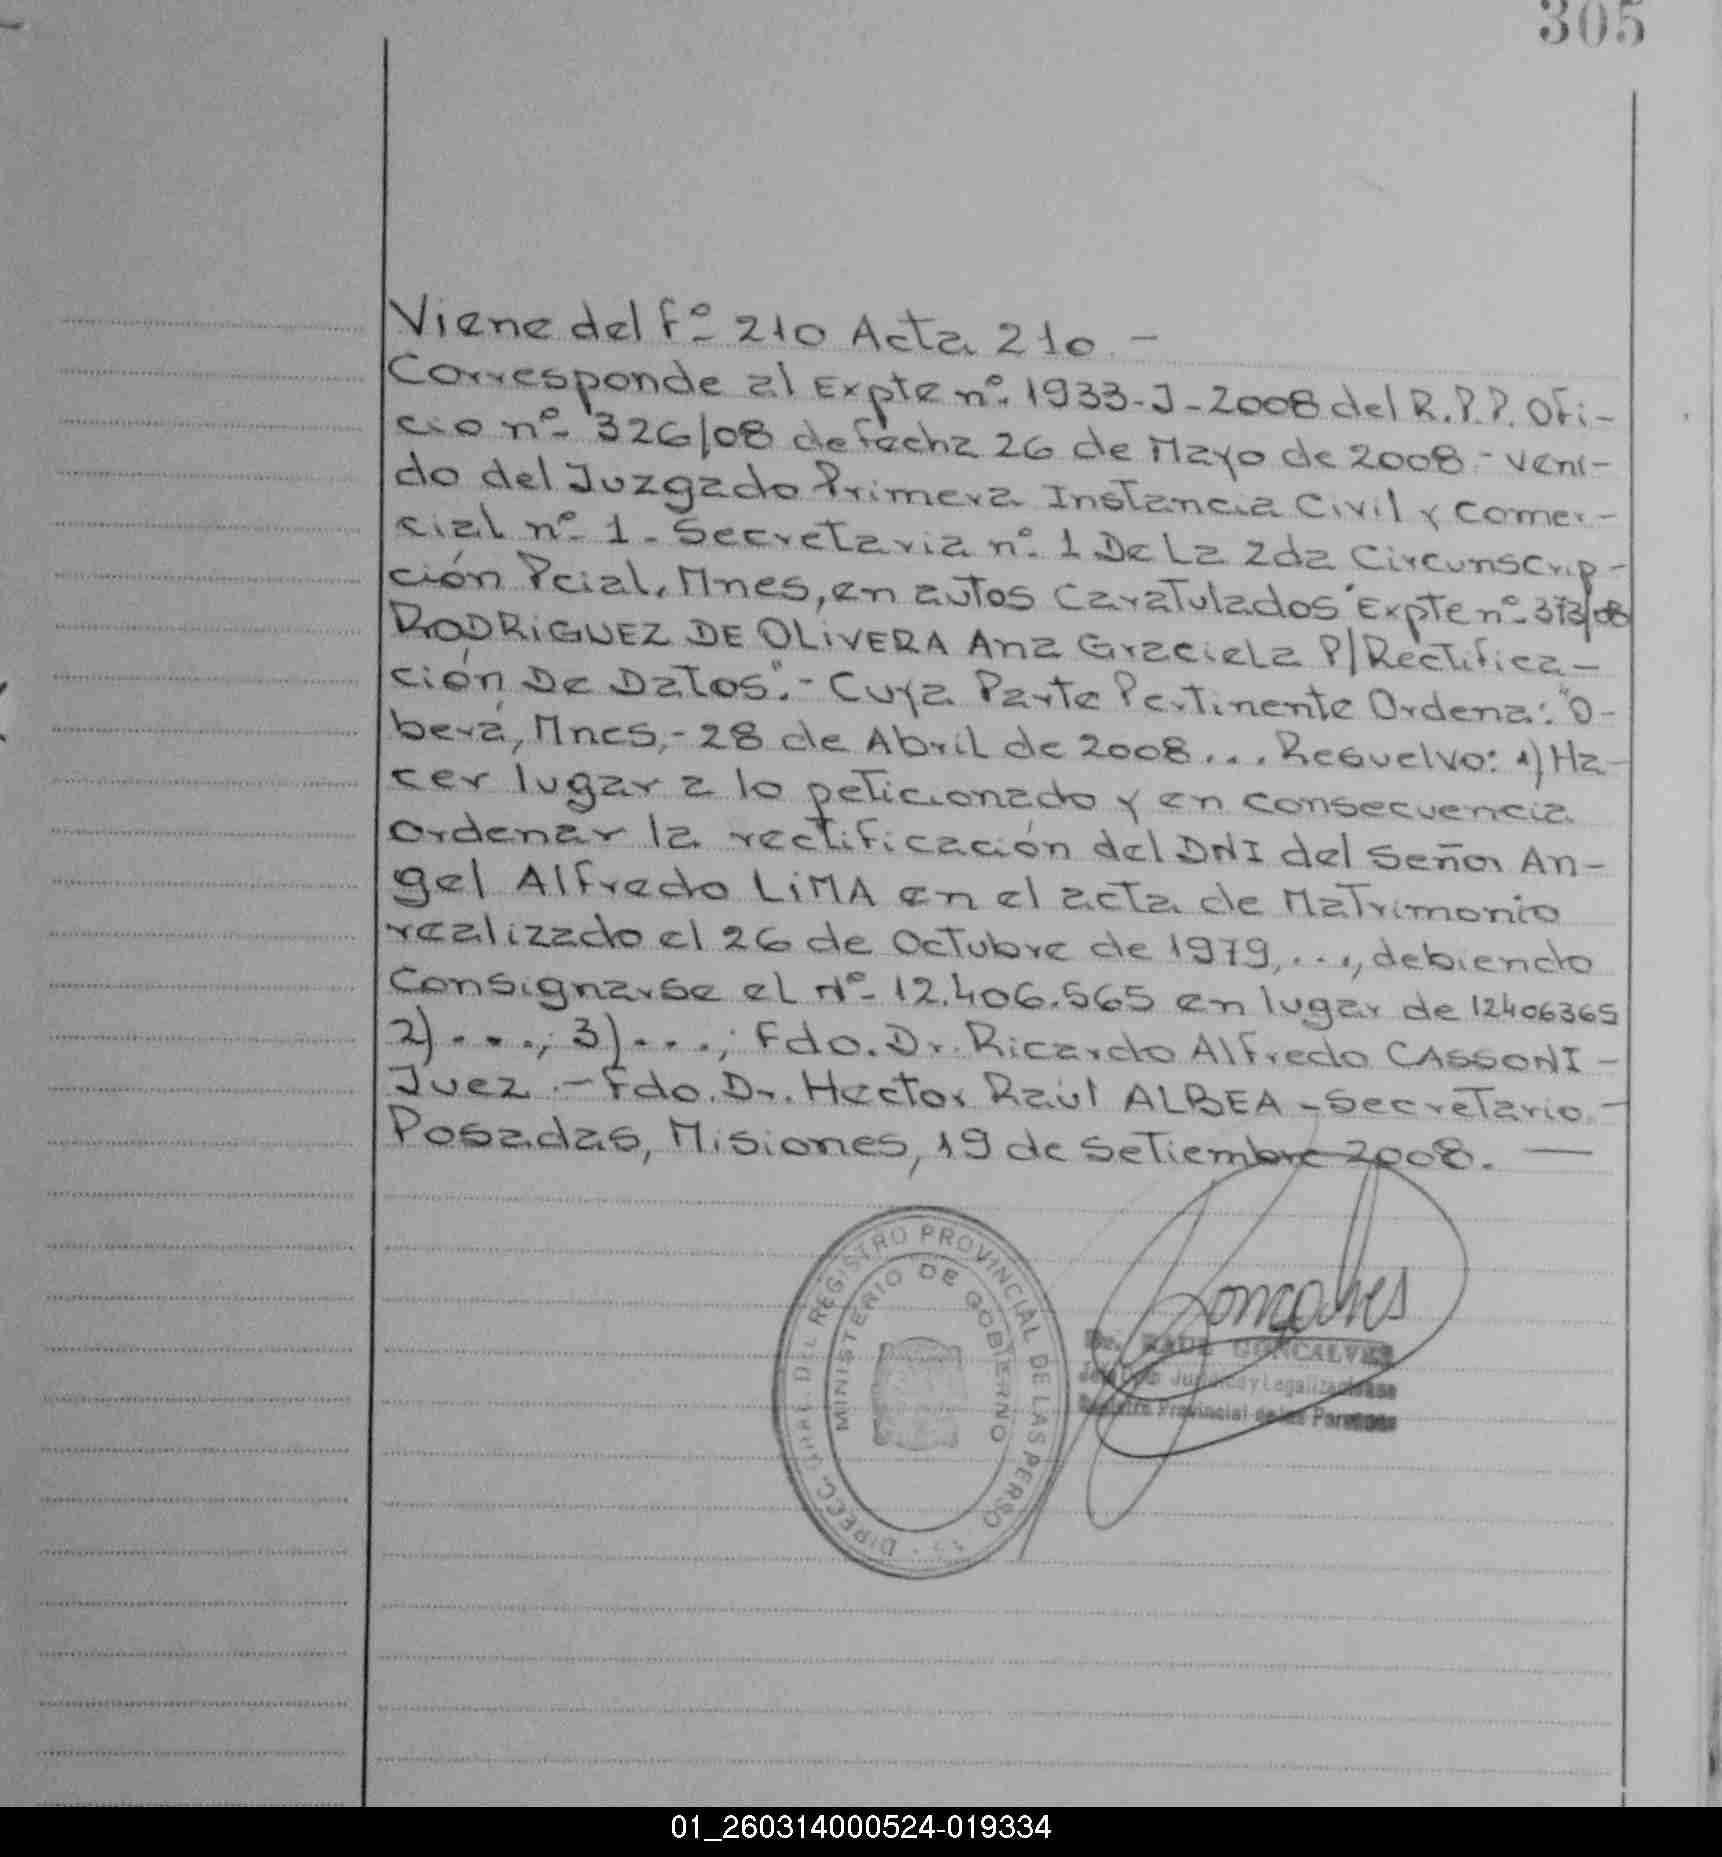 305
Viene del fº- 210 Acta 210. -
Corresponde al Expte nº- 1933-J-2008 del R.P.P. Ofi-
cio nº- 326/08 de fecha 26 de Mayo de 2008.- veni-
do del Juzgado Primera Instancia Civil y Comer-
cial nº- 1 - Secretaria nº- 1 De La 2da Circunscrip-
ción Pcial, Mnes, en autos Caratulados "Expte nº- 373/08
RODRIGUEZ DE OLIVERA Ana Graciela P/Rectifica-
ción De Datos".- Cuya Parte Pertinente Ordena: "O-
berá, Mnes,- 28 de Abril de 2008... Resuelvo: 1) Ha-
cer lugar a lo peticionado y en consecuencia
ordenar la rectificación del DNI del Señor An-
gel Alfredo LiMA en el acta de Matrimonio
realizado el 26 de Octubre de 1979, ..., debiendo
Consignarse el Nº- 12.406.565 en lugar de 12406365
2)....; 3)....; Fdo. Dr. Ricardo Alfredo CASSONI -
Juez .- Fdo. Dr. Hector Raúl ALBEA - Secretario. -
Posadas, Misiones, 19 de Setiembre 2008. —
DIRECC. GRAL. DEL REGISTRO PROVINCIAL DE LAS PERSO
MINISTERIO DE GOBIERNO
Goncalves
Dr. RAUL GONCALVES
Jurídica y Legalizaciones
Registro Provincial de las Personas
01_260314000524-019334